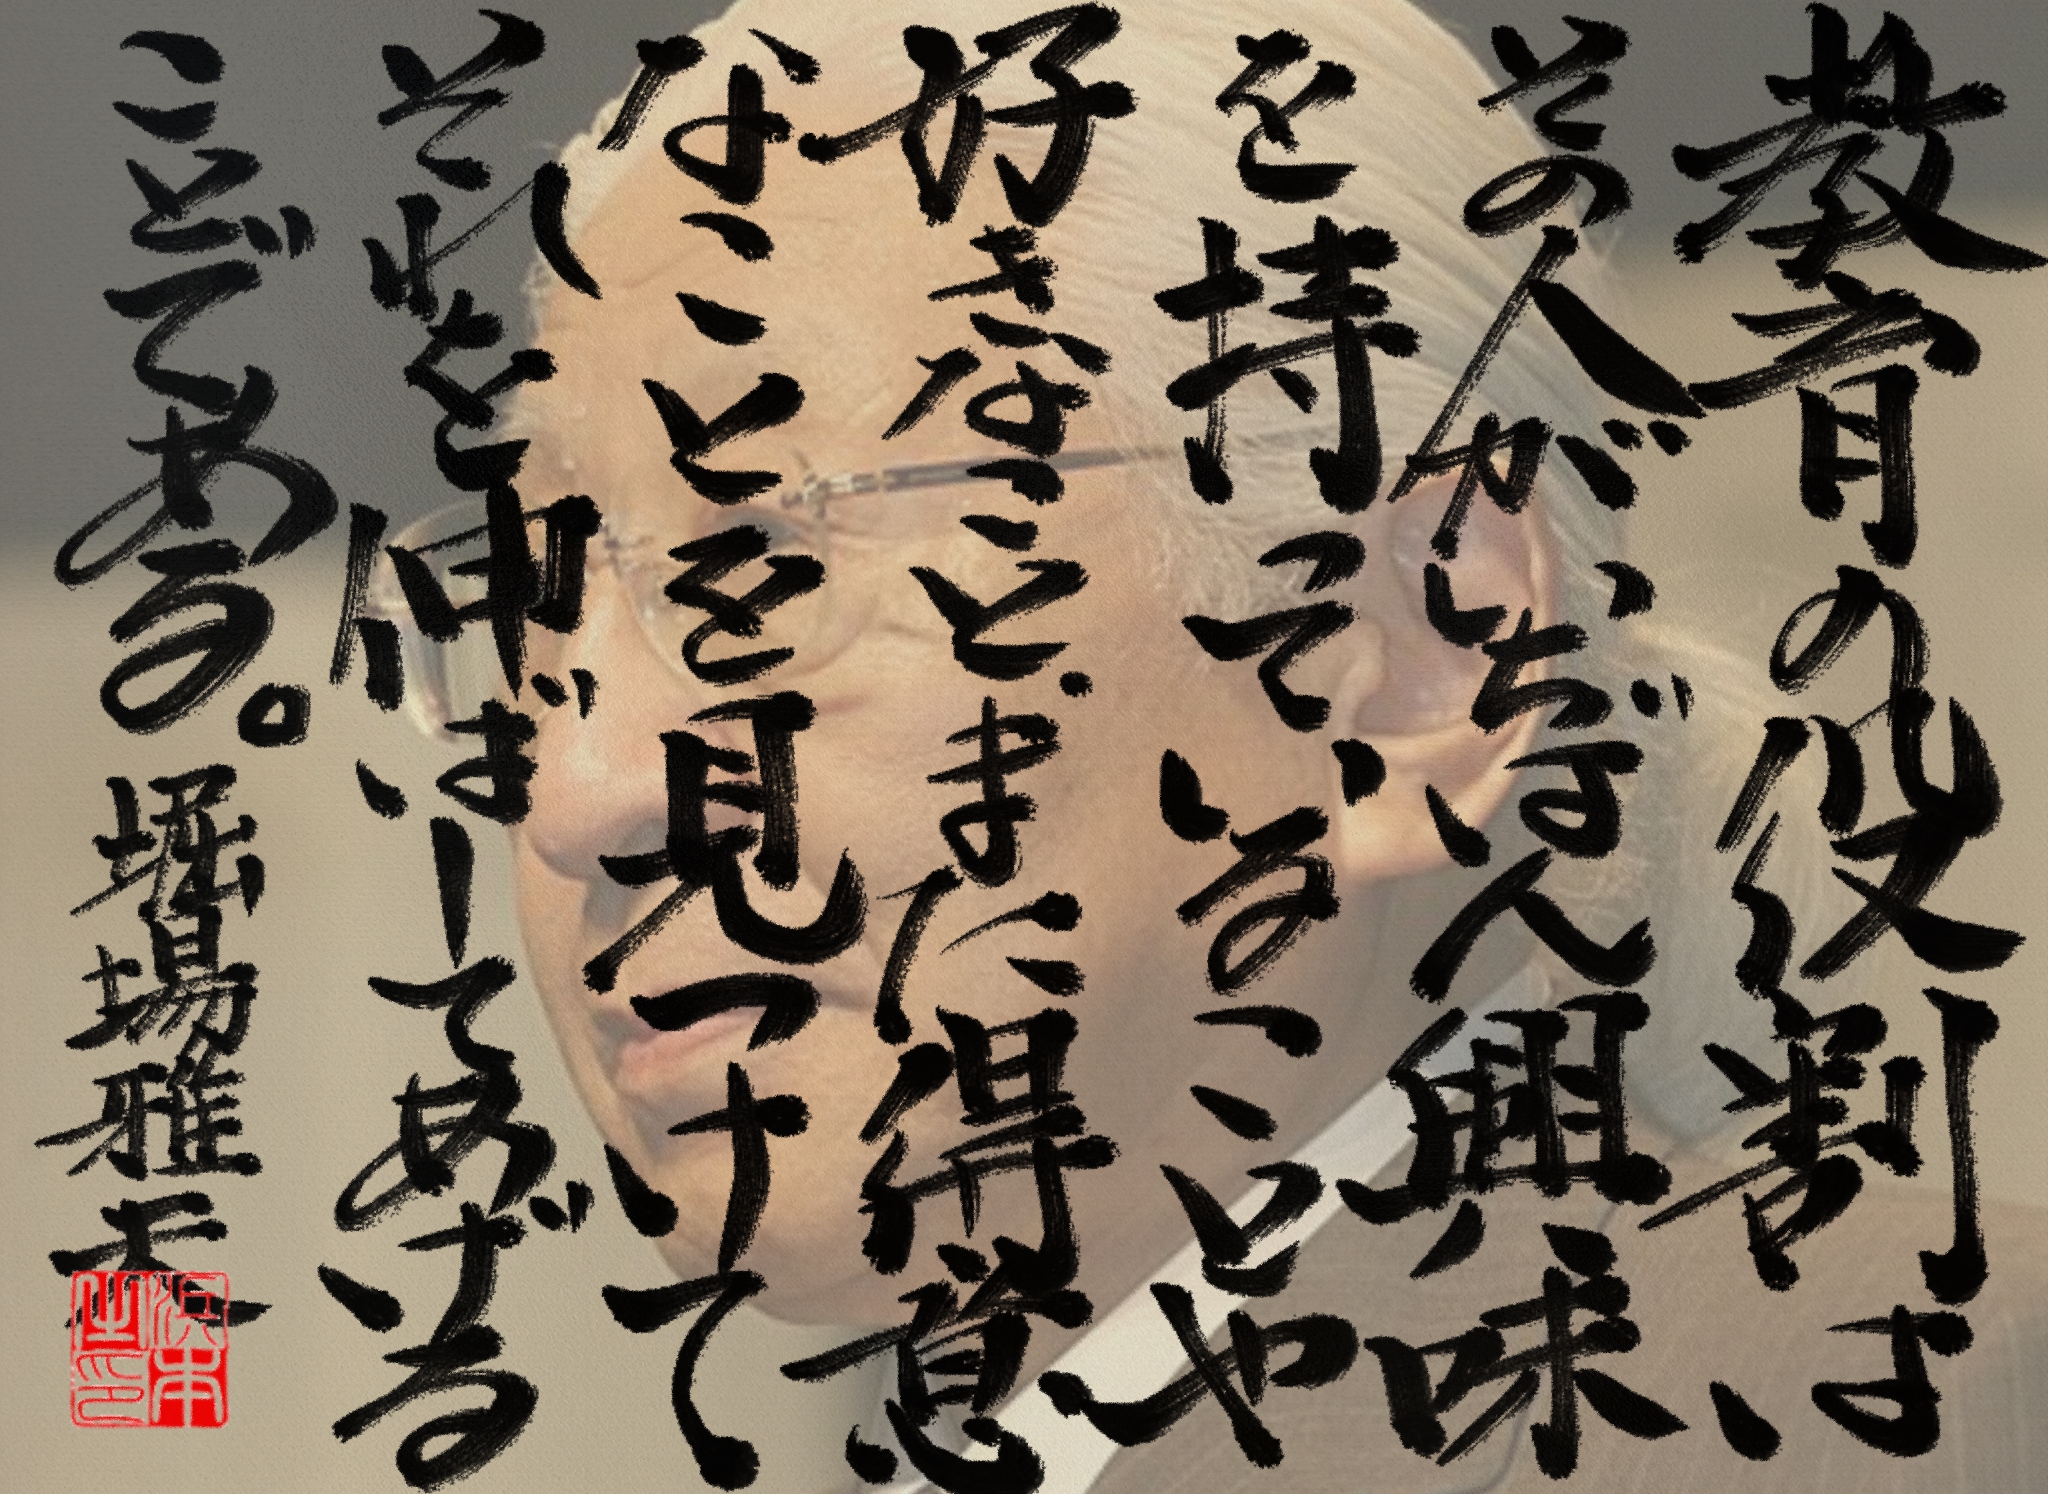 教育の役割は
その人がいちばん興味
を持っていることや
好きなこと、また得意
なことを見つけて
それを伸ばしてあげる
ことである。堀場雅夫
浜本之印